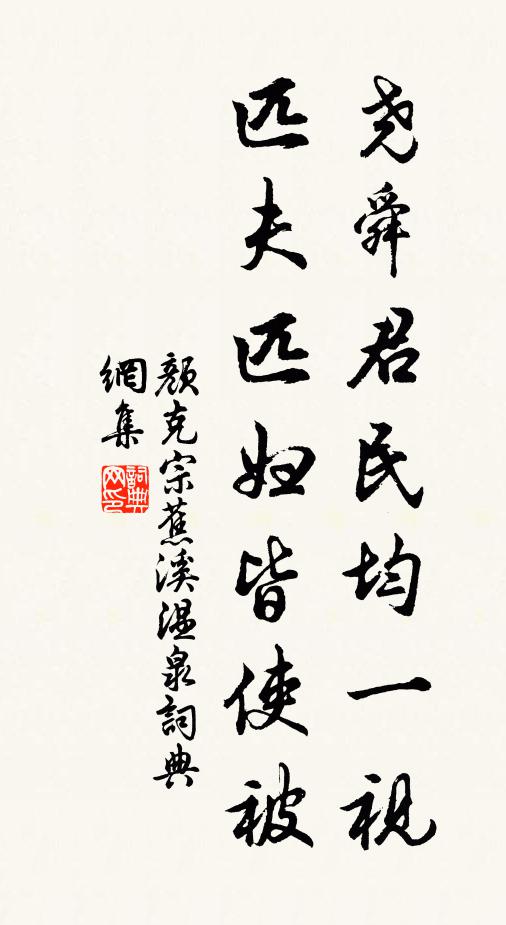 尧舜君民均一視
匹夫匹妇皆使被
顏克宗蕉溪温泉詞典
網集
詞典網印